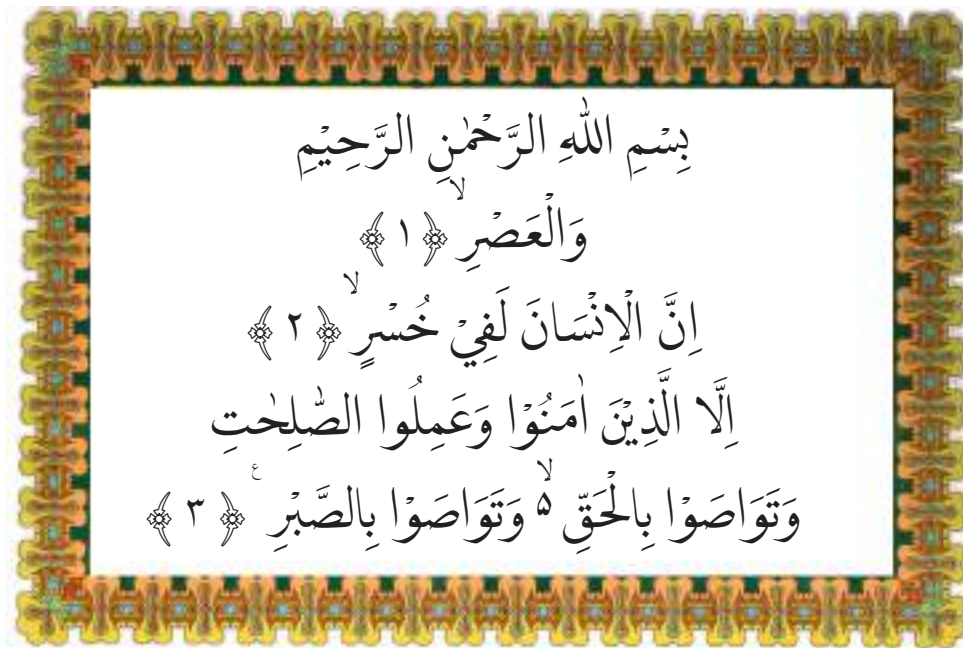 بِسْمِ اللّٰهِ الرَّحْمٰنِ الرَّحِيْمِ
وَالْعَصْرِۙ ﴿١﴾
اِنَّ الْاِنْسَانَ لَفِيْ خُسْرٍۙ ﴿٢﴾
اِلَّا الَّذِيْنَ اٰمَنُوْا وَعَمِلُوا الصّٰلِحٰتِ
وَتَوَاصَوْا بِالْحَقِّ ۵ۙ وَتَوَاصَوْا بِالصَّبْرِ ࣖ ﴿٣﴾